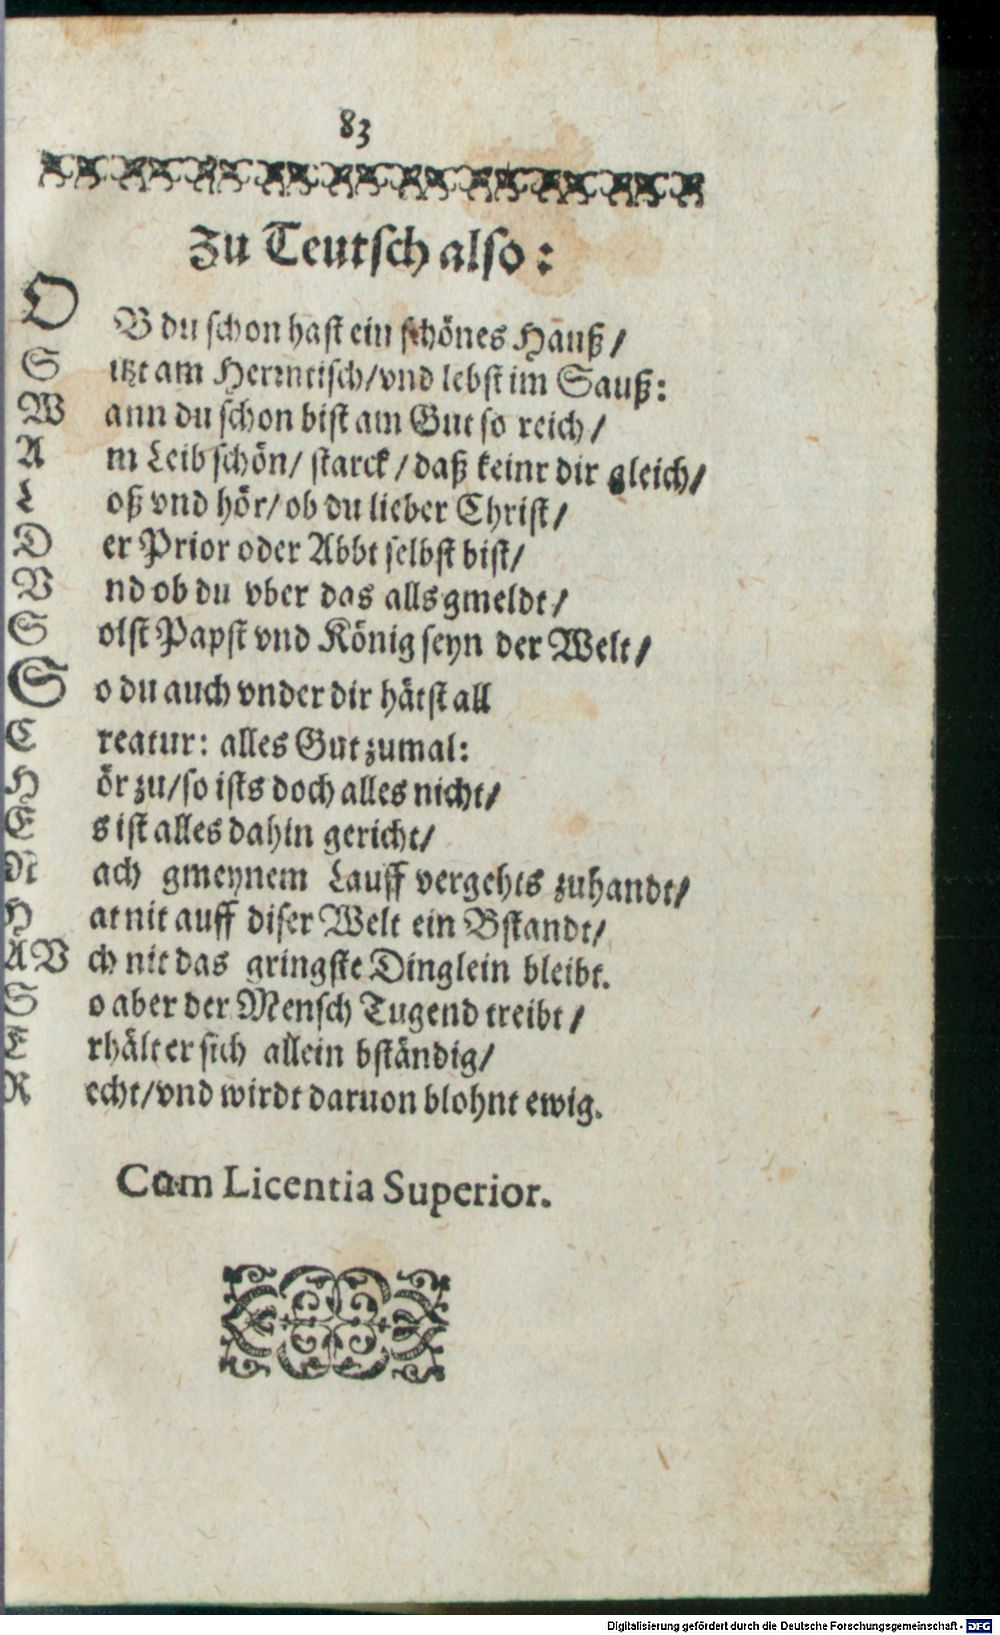 83
Zu Teutsch also:
OB du schon hast ein schönes Hauß/
Sitzt am Herrntisch/vnd lebst im Sauß:
Wann du schon bist am Gut so reich/
Am Leib schön/ starck/daß keinr dir gleich/
Loß vnd hör/ob du lieber Christ/
Der Prior oder Abbt selbst bist/
Vnd ob du vber das alls gmeldt/
Solst Papst vnd König seyn der Welt/
So du auch vnder dir hätst all
Creatur: alles Gut zumal:
Hör zu/so ists doch alles nicht/
Es ist alles dahin gericht/
Nach gmeynem Lauff vergehts zuhandt/
Hat nit auff diser Welt ein Bstandt/
AVch nit das gringste Dinglein bleibt.
So aber der Mensch Tugend treibt/
Erhält er sich allein bständig/
Recht/vnd wirdt daruon blohnt ewig.
Cum Licentia Superior.
Digitalisierung gefördert durch die Deutsche Forschungsgemeinschaft - DFG